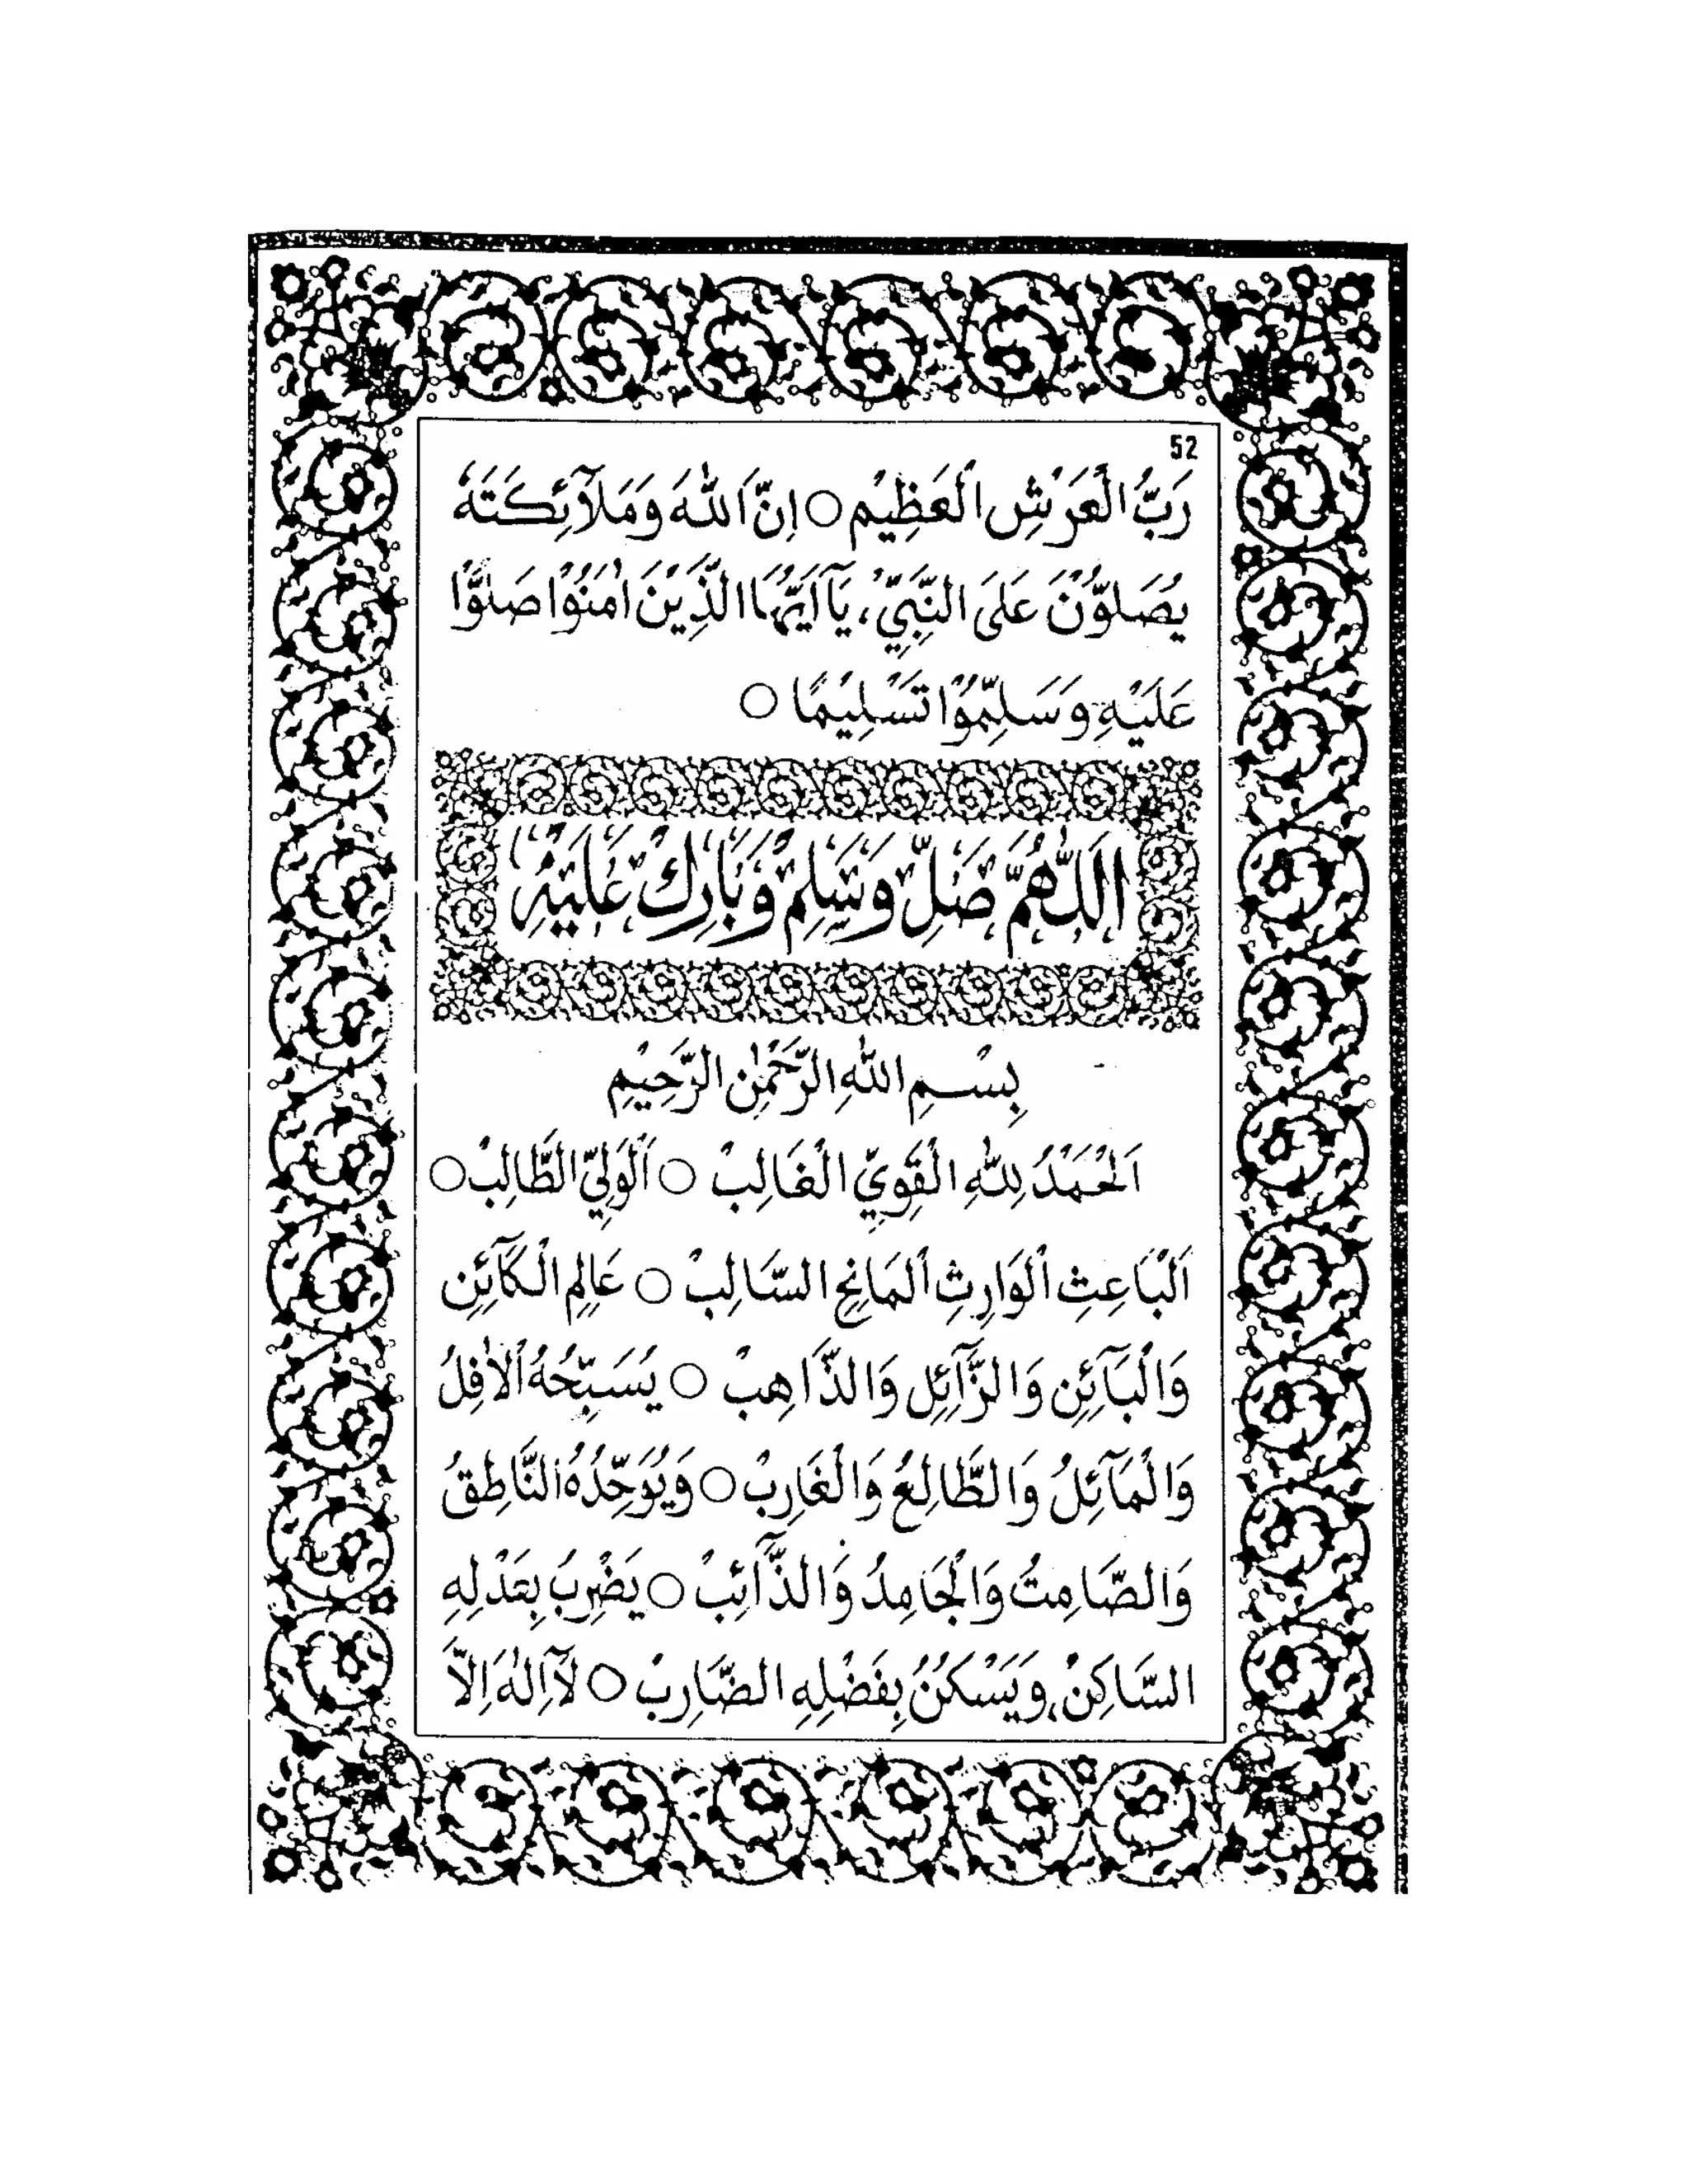 52
رَبُّ الْعَرْشِ الْعَظِيْمِ ○ اِنَّ اللّٰهَ وَمَلَآئِكَتَهٗ
يُصَلُّوْنَ عَلَى النَّبِيِّ، يَآ اَيُّهَا الَّذِيْنَ اٰمَنُوْا صَلُّوْا
عَلَيْهِ وَسَلِّمُوْا تَسْلِيْمًا ○
اَللّٰهُمَّ صَلِّ وَسَلِّمْ وَبَارِكْ عَلَيْهِ
بِسْمِ اللّٰهِ الرَّحْمٰنِ الرَّحِيْمِ
اَلْحَمْدُ لِلّٰهِ الْقَوِيِّ الْغَالِبْ ○ اَلْوَلِيِّ الطَّالِبْ ○
اَلْبَاعِثِ الْوَارِثِ الْمَانِحِ السَّالِبْ ○ عَالِمِ الْكَآئِنِ
وَالْبَآئِنِ وَالزَّآئِلِ وَالذَّاهِبْ ○ يُسَبِّحُهُ الْاٰفِلُ
وَالْمَآئِلُ وَالطَّالِعُ وَالْغَارِبْ ○ وَيُوَحِّدُهُ النَّاطِقُ
وَالصَّامِتُ وَالْجَامِدُ وَالذَّآئِبْ ○ يَضْرِبُ بِعَدْلِهِ
السَّاكِنْ، وَيَسْكُنُ بِفَضْلِهِ الضَّارِبْ ○ لَآ اِلٰهَ اِلَّا